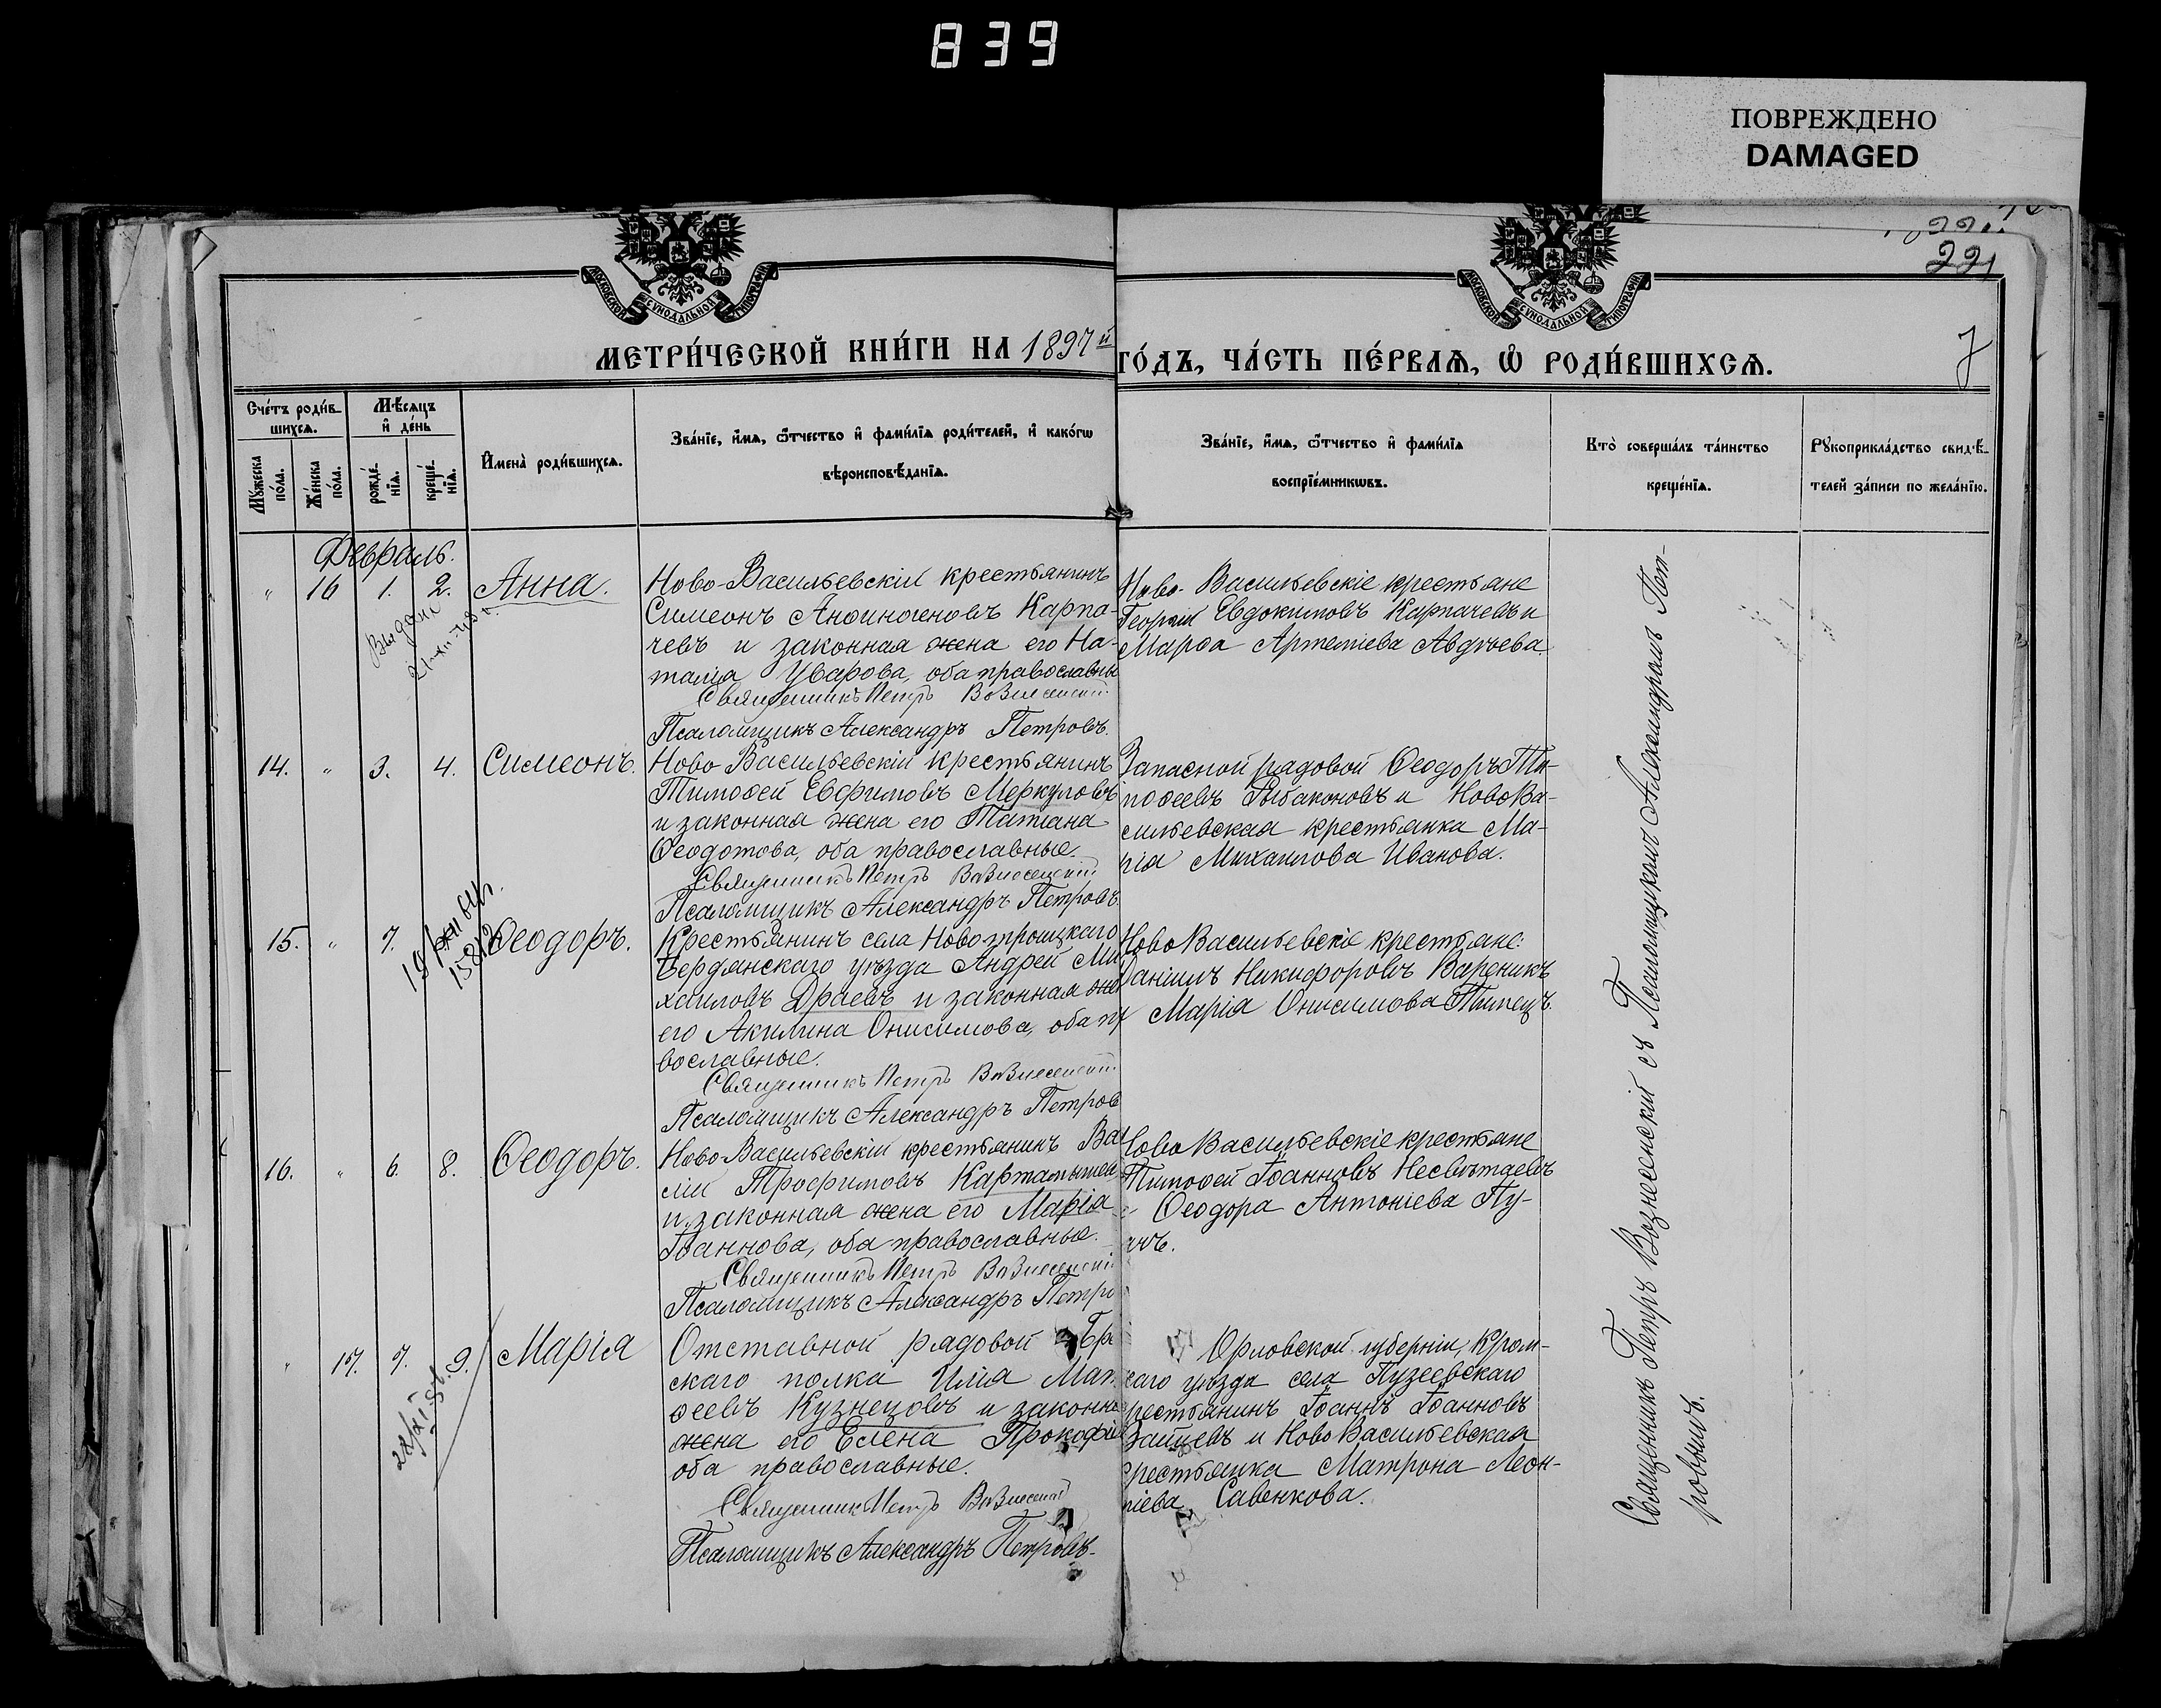 839
ПОВРЕЖДЕНО
DAMAGED
221
МОСКОВСКОЙ СѴНОДАЛЬНОЙ ТИПОГРАФІИ
МОСКОВСКОЙ СѴНОДАЛЬНОЙ ТИПОГРАФІИ
МЕТРИ́ЧЕСКОЙ КНИ́ГИ НА 1897й
ГО́ДЪ, ЧА́СТЬ ПЕ́РВАѦ, Ѡ҆ РОДИ́ВШИХСѦ.
7
Счетъ роди́в-
шихсѧ.
Мѣсѧцъ
и҆ де́нь
Мꙋжеска по́ла.
Же́нска по́ла.
рожде́-
нїѧ.
креще́-
нїѧ.
И҆мена̀ роди́вшихсѧ.
Зва́нїе, и҆́мѧ, ѻ҆́тчество и҆ фами́лїѧ роди́телей, и҆ како́гѡ
вѣроисповѣданїѧ.
Зва́нїе, и҆́мѧ, ѻ҆́тчество и҆ фами́лїѧ
воспрїе́мникѡвъ.
Кто̀ соверша́лъ та́инство
креще́нїѧ.
Рꙋкоприкла́дство свидѣ-
телей за́писи по жела́нїю.
Февраль.
" 16 1. 2. Анна.
Выдан
Ново-Васильевскій крестьянинъ
Симеонъ Анѳиногеновъ Карпа-
чевъ и законная жена его На-
талія Уварова, оба православны
Священникъ Петръ Вознесенскій
Псаломщикъ Александръ Петровъ.
Ново-Васильевскіе крестьяне
Георгій Евдокимовъ Карпачевъ и
Марѳа Артеміева Авдѣева.
14. " 3. 4. Симеонъ.
Ново Васильевскій крестьянинъ
Тимоѳей Евфимовъ Меркуловъ
и законная жена его Татіана
Ѳеодотова, оба православные.
Священникъ Петръ Вознесенскій
Псаломщикъ Александръ Петровъ.
Запасной рядовой Ѳеодоръ Ти-
моѳеевъ Рыбаконовъ и НовоВа-
сильевская крестьянка Ма-
рія Михаилова Иванова.
15. " 7. Ѳеодоръ.
Крестьянинъ села Новотроицкаго
Бердянскаго уѣзда Андрей Ми
хаиловъ Драевъ и законная жена
его Акилина Онисимова, оба пр
вославные.
Священникъ Петръ Вознесенскій
Псаломщикъ Александръ Петров
НовоВасильевскіе крестьяне:
Даніилъ Никифоровъ Вареникъ
Марія Онисимова Типецъ.
16. " 6. 8. Ѳеодоръ.
Ново-Васильевскій крестьянинъ Ва
сілій Трофимовъ Картамышев
и законная жена его Марія
Іоаннова, оба православные.
Священникъ Петръ Вознесенскі
Псаломщикъ Александръ Петро
НовоВасильевскіе крестьяне
Тимоѳей Іоанновъ Несвѣтаевъ
Ѳеодора Антоніева Пу-
" 17. 7. 9. Марія
Отставной рядовой
скаго полка Илія Мат
ѳеевъ Кузнецовъ и законна
жена его Елена Прокофі
оба православные.
Священникъ Петръ Вознесенскі
Псаломщикъ Александръ Петровъ.
Орловской губерніи, Кром-
скаго уѣзда села Пузеевскаго
крестьянинъ Іоаннъ Іоанновъ
Зайцевъ и НовоВасильевская
крестьянка Матрона Леон-
тіева Савенкова.
Священникъ Петръ Вознесенскій съ Псаломщикомъ Александромъ Пет-
ровымъ.